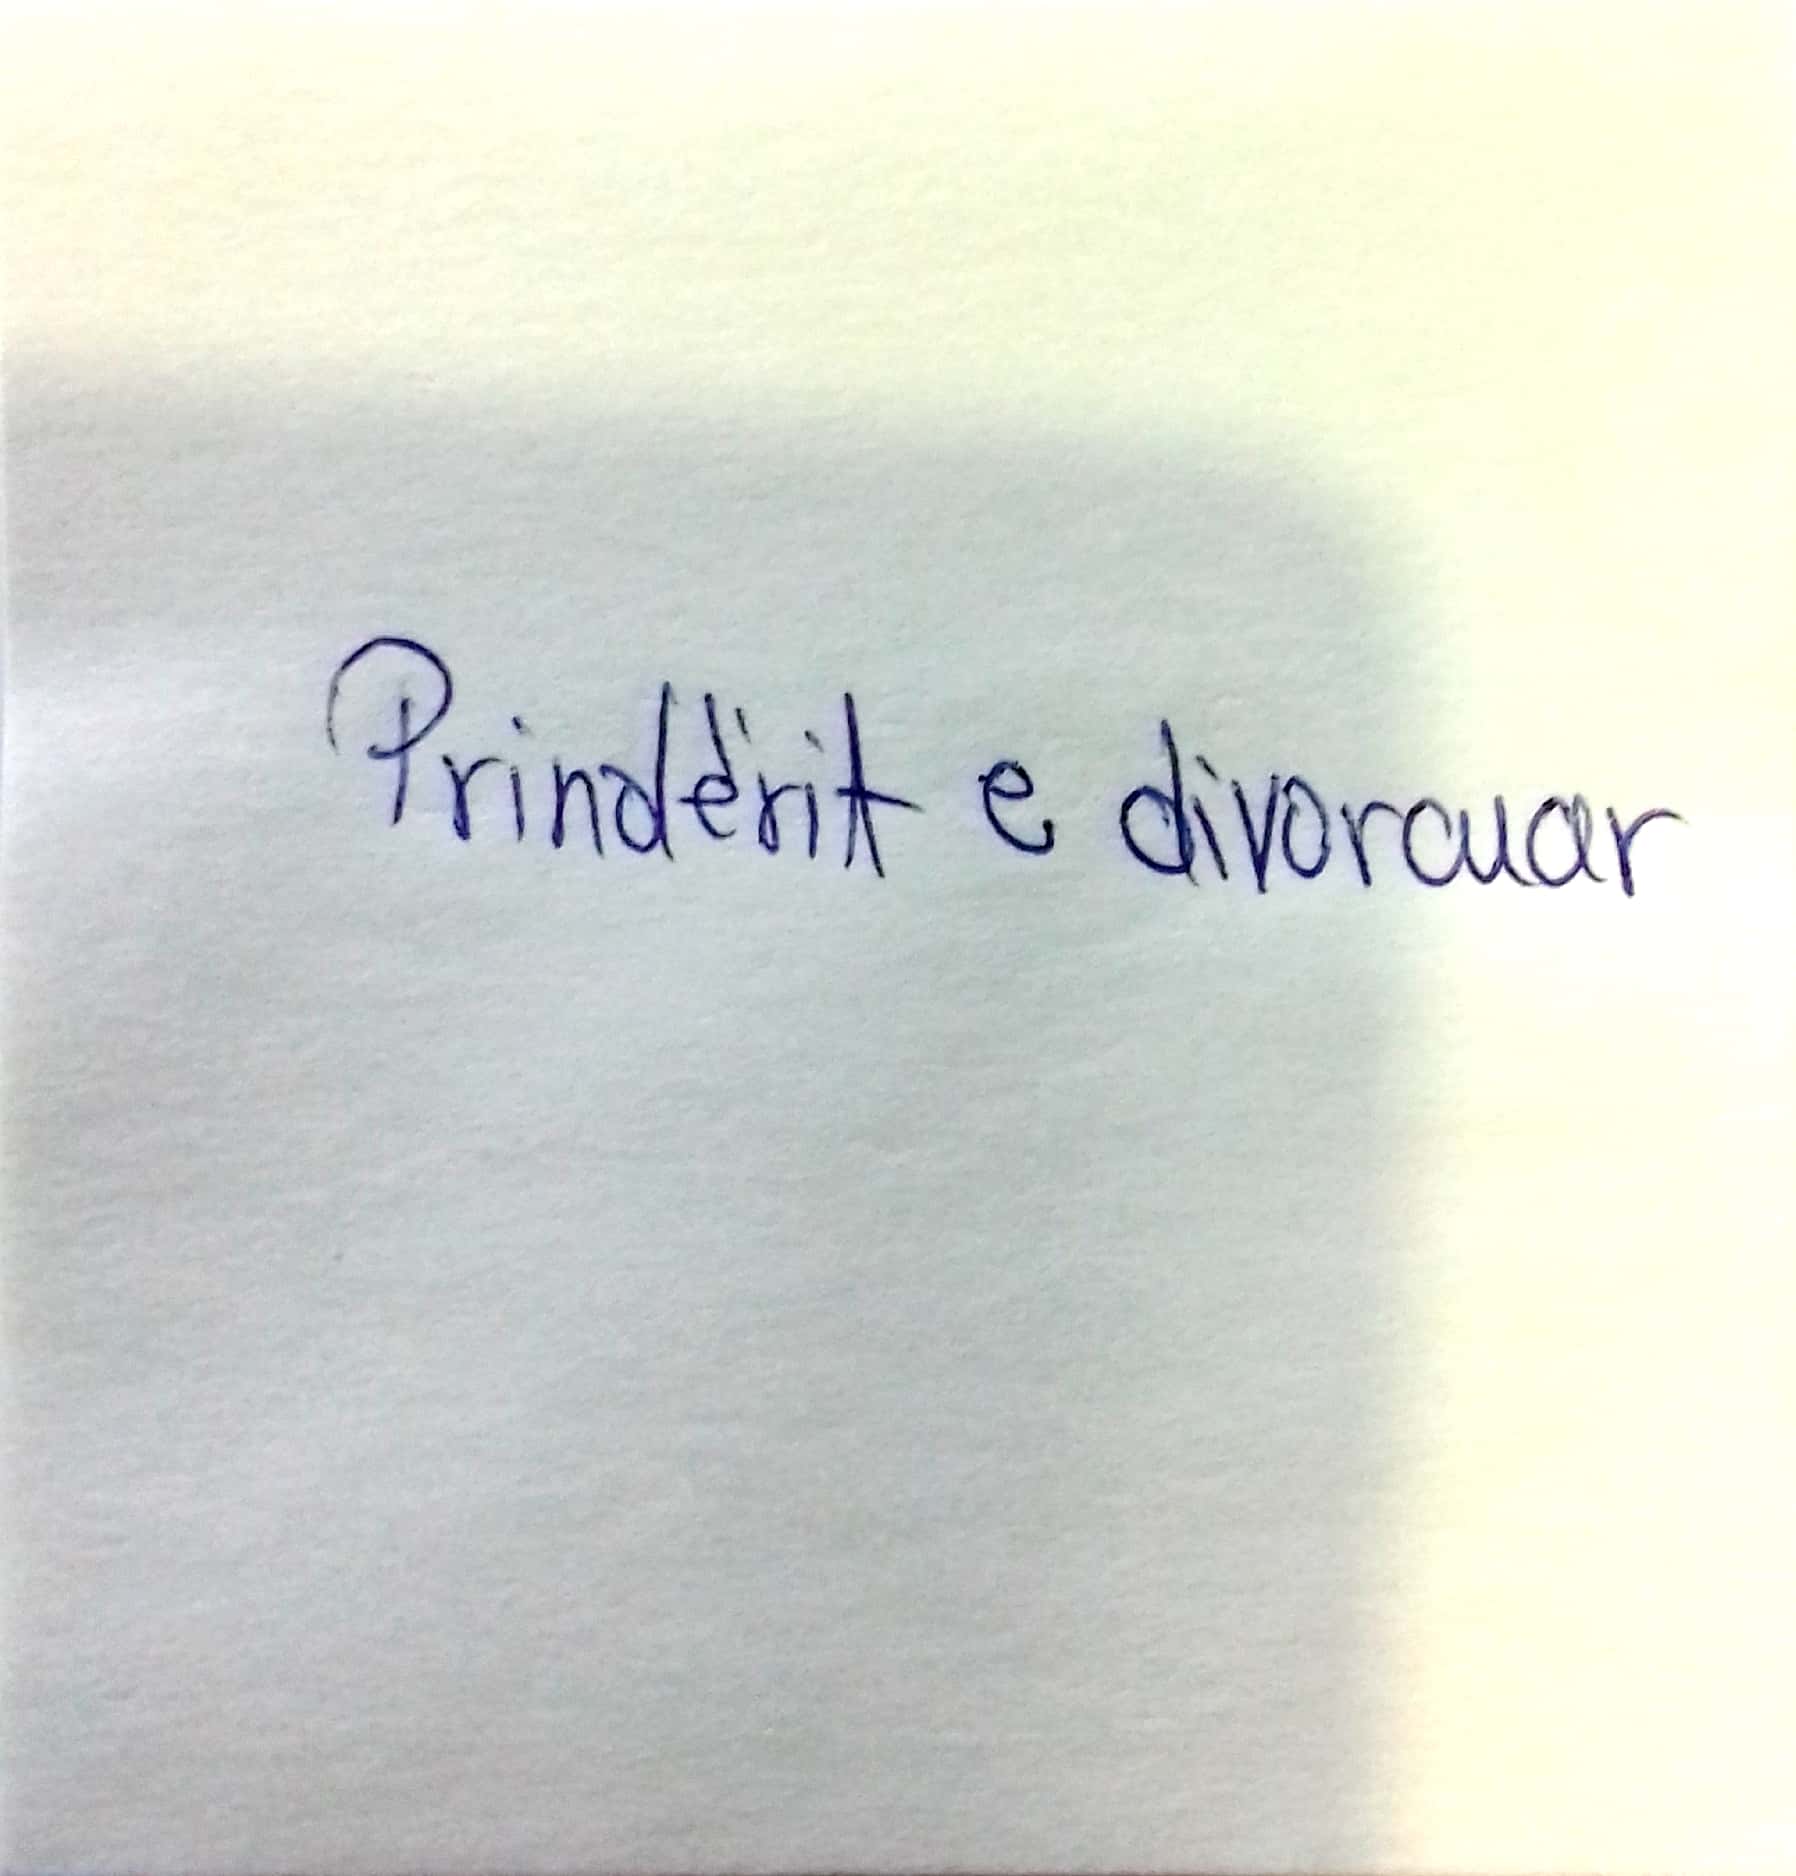 Prindërit e divorcuar